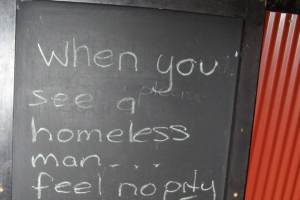 When you
see a please
homeless
man...
feel no pity